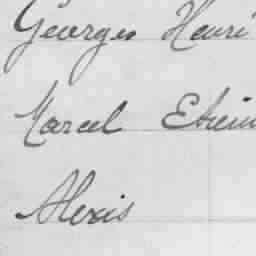 Georges Henri
Marcel
Alexis